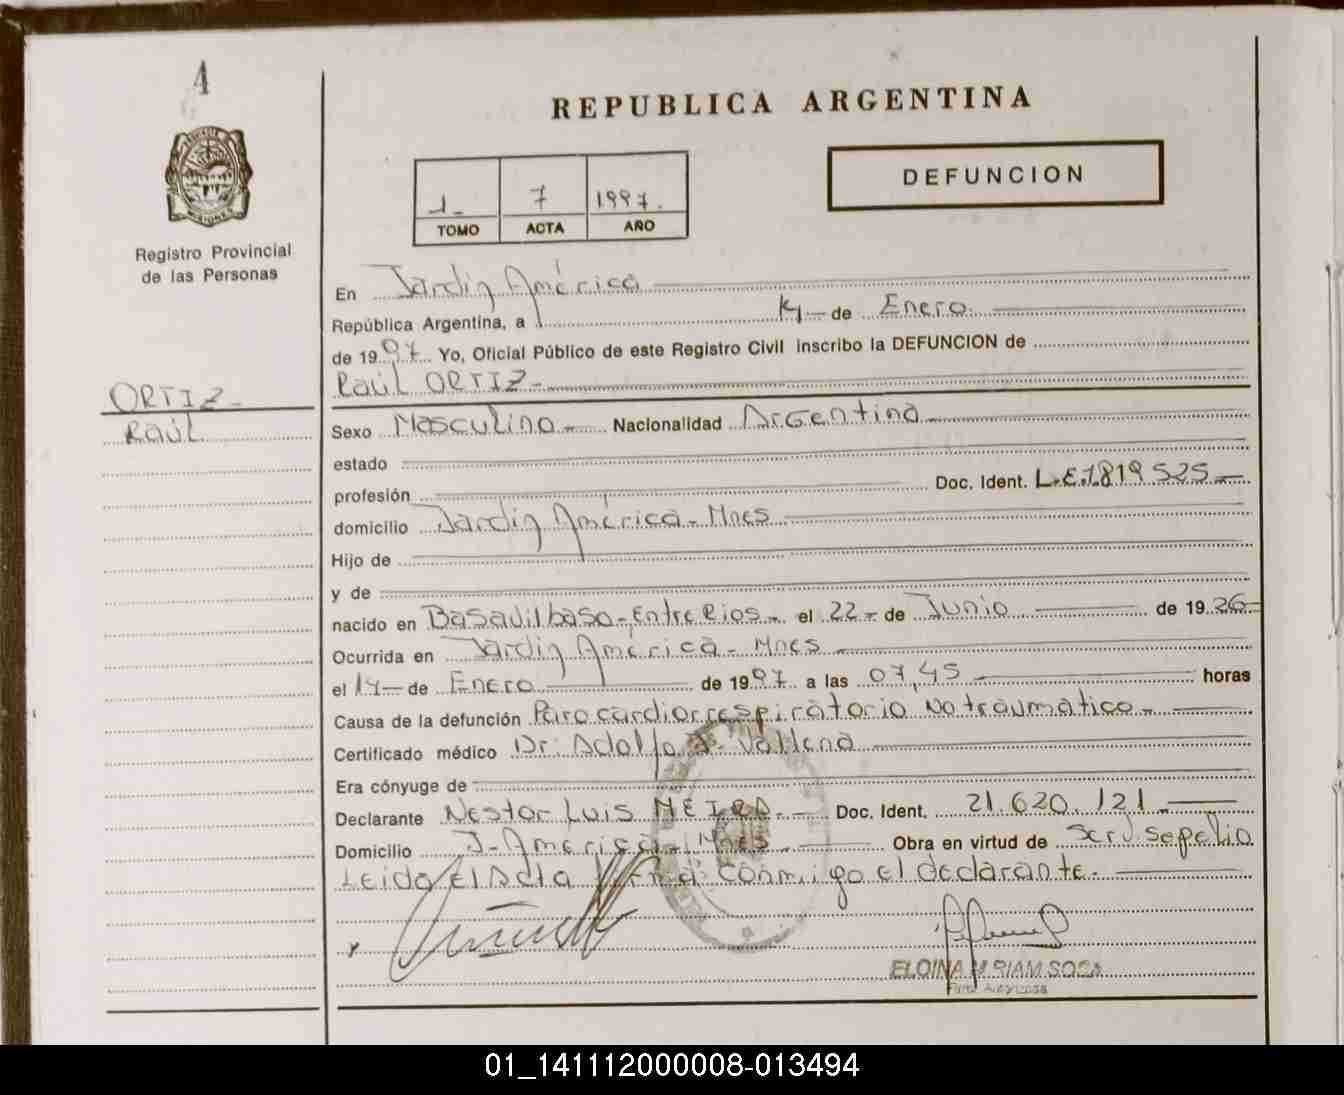 4
REPUBLICA ARGENTINA
MISIONES
Registro Provincial
de las Personas
1 7 1997.
TOMO ACTA AÑO
DEFUNCION
En Jardín América
República Argentina, a 14 de Enero
de 1997 Yo, Oficial Público de este Registro Civil inscribo la DEFUNCION de
Raúl ORTIZ.-
ORTIZ-
Raúl
Sexo Masculino.- Nacionalidad Argentina-
estado
profesión Doc. Ident. L.E.1.819.525.-
domicilio Jardín América - Mnes
Hijo de
y de
nacido en Basavilbaso-Entre Rios.- el 22- de Junio de 1926-
Ocurrida en Jardín América - Mnes.-
el 14- de Enero de 1997 a las 07,45 horas
Causa de la defunción Paro cardiorrespiratorio No traumático.-
Certificado médico Dr. Adolfo
Era cónyuge de
Declarante Nestor Luis NEIRA.- Doc. Ident. 21.620.121.-
Domicilio J. América - Mnes.- Obra en virtud de Serv. sepelio
Leida el Acta Firma conmigo el declarante.-
ELOINA MIRIAM SOSA